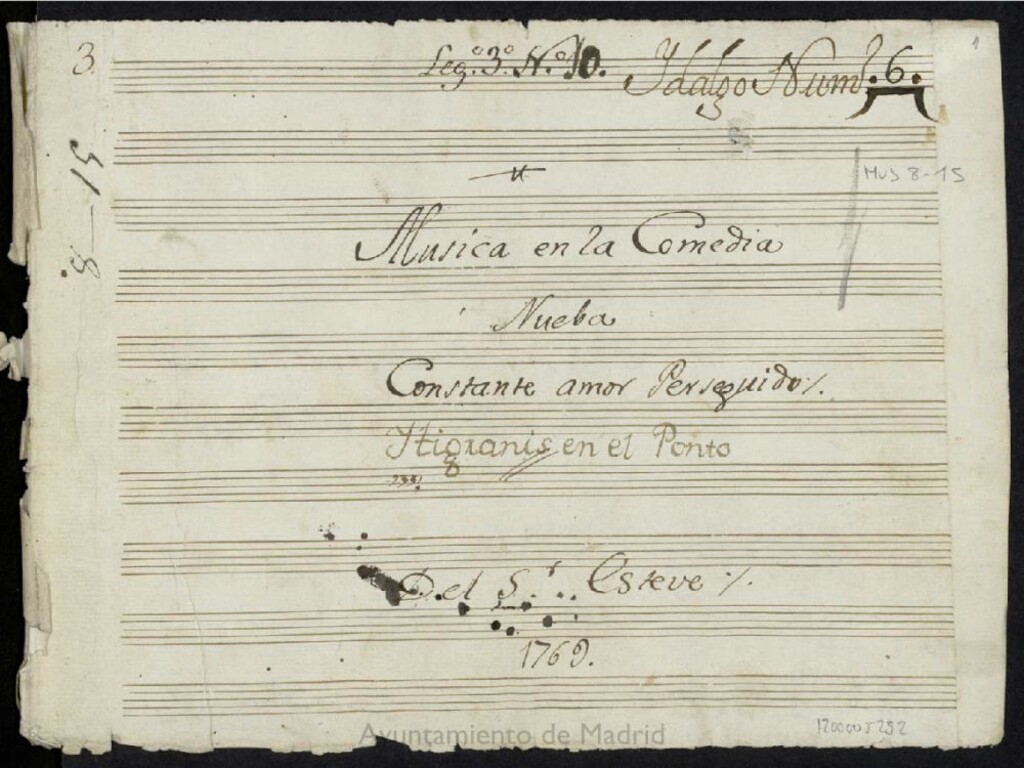 3.
Leg.º 3.º N.º 10. Ydalgo Num.º 6.
1
51-8.
MUS 8-15
Musica en la Comedia
Nueba
Constante amor Perseguido /.
Ytigranis en el Ponto
Del S.r Esteve /.
1769.
Ayuntamiento de Madrid
1200005292